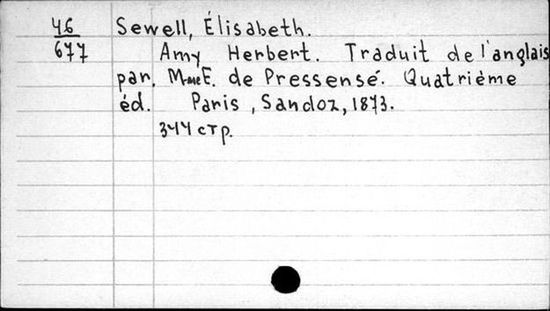 46 Sewell, Élisabeth.
677 Amy Herbert. Traduit de l'anglais
par. Mme E. de Pressensé. Quatriéme
éd. Paris, Sandoz, 1873.
344 стр.